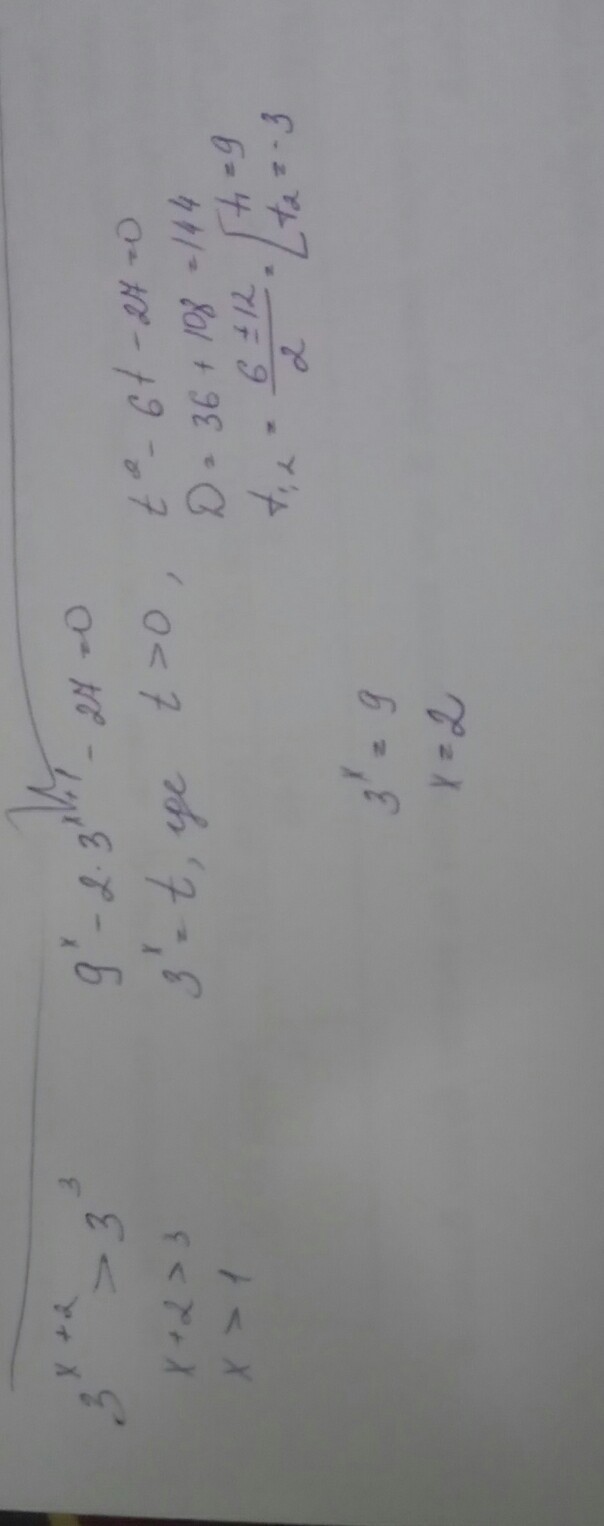 3^(x+2) > 3^3
x+2 > 3
x > 1
9^x - 2·3^(x+1) - 27 = 0
3^x = t, где t > 0, t^2 - 6t - 27 = 0
D = 36 + 108 = 144
t1,2 = (6 ± 12)/2 = [t1 = 9
[t2 = -3
3^x = 9
x = 2